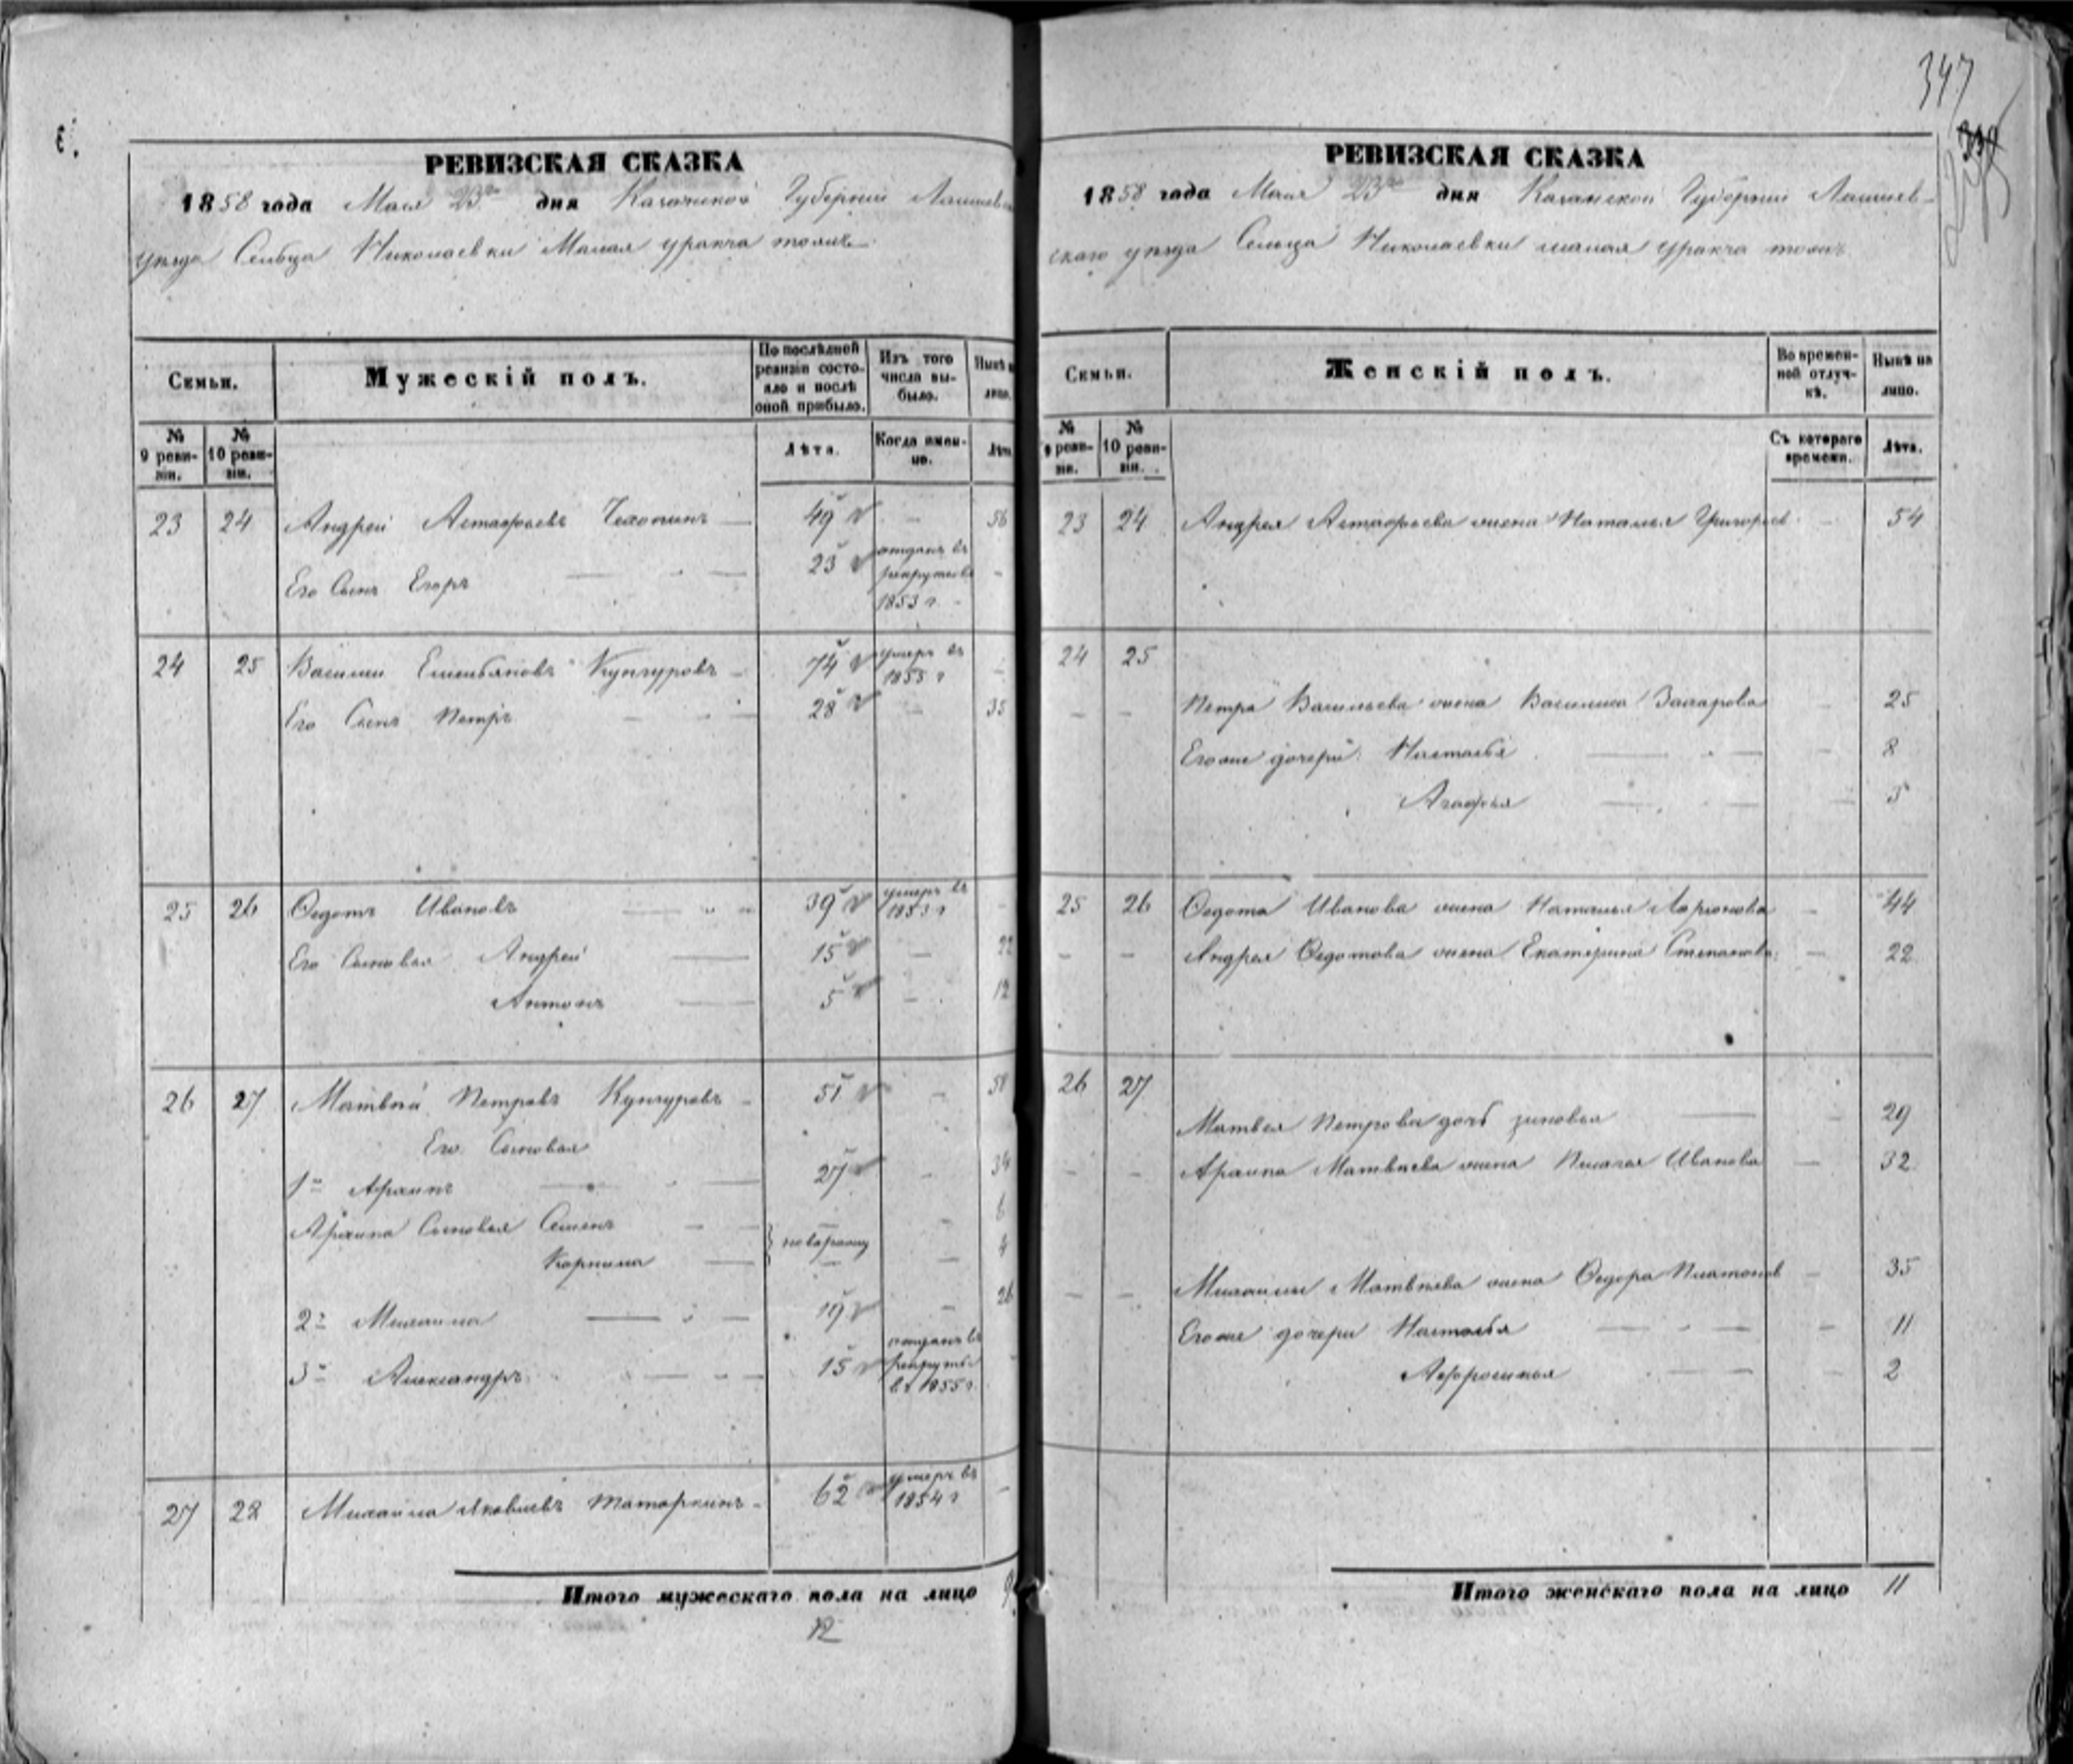 347
РЕВИЗСКАЯ СКАЗКА
1858 года Мая 23го дня Казанской Губернии Лаишевс
уѣзда Сельца Николаевки Малая уракча тожъ
Семьи.
Мужескій полъ.
По послѣдней ревизіи состояло и послѣ оной прибыло.
Изъ того числа выбыло.
Нынѣ н лицо.
№ 9 ревизіи.
№ 10 ревизіи.
Лѣта.
Когда именно.
Лѣта
23 24 Андрей Астафьевъ 49 - 56
Его Сынъ Егоръ 23 отданъ въ рекруты въ 1853 г. -
24 25 Василий Кунгуровъ 74 умеръ въ 1855 г -
Его Сынъ Петръ 28 - 35
25 26 Ѳедотъ Ивановъ 39 умеръ въ 1853 г -
Его Сыновья Андрей 15 - 22
Антонъ 5 - 12
26 27 Матвѣй Петровъ Кунгуровъ 51 - 58
Его Сыновья
1й Архипъ 27 - 34
Архипа Сыновья Семенъ - 6
Корнила - 4
2й Михаила 19 - 26
3й Александръ 15 отданъ въ рекруты въ 1855 г. -
27 28 Михаила Яковлевъ Татаркинъ 62 умеръ въ 1854 г -
Итого мужескаго пола на лицо 9
12
РЕВИЗСКАЯ СКАЗКА
1858 года Мая 23го дня Казанской Губернии Лаишев-
скаго уѣзда Сельца Николаевки малая уракча тожъ
Семьи.
Женскій полъ.
Во временной отлучкѣ.
Нынѣ на лицо.
№ 9 ревизіи.
№ 10 ревизіи.
Съ котораго времени.
Лѣта.
23 24 Андрея Астафьева жена Наталья Григорьев - 54
24 25
- - Петра Васильева жена Василиса Захарова - 25
Егоже дочери Настасья - 8
Агафья - 5
25 26 Ѳедота Иванова жена Наталья Ларионова - 44
- - Андрея Ѳедотова жена Екатерина Степанова - 22
26 27
Матвея Петрова дочь зиновья - 29
- - Архипа Матвѣева жена Пелагея Иванова - 32
- - Михаилы Матвѣева жена Ѳедора Платонов - 35
Егоже дочери Настасья - 11
Афросинья - 2
Итого женскаго пола на лицо 11